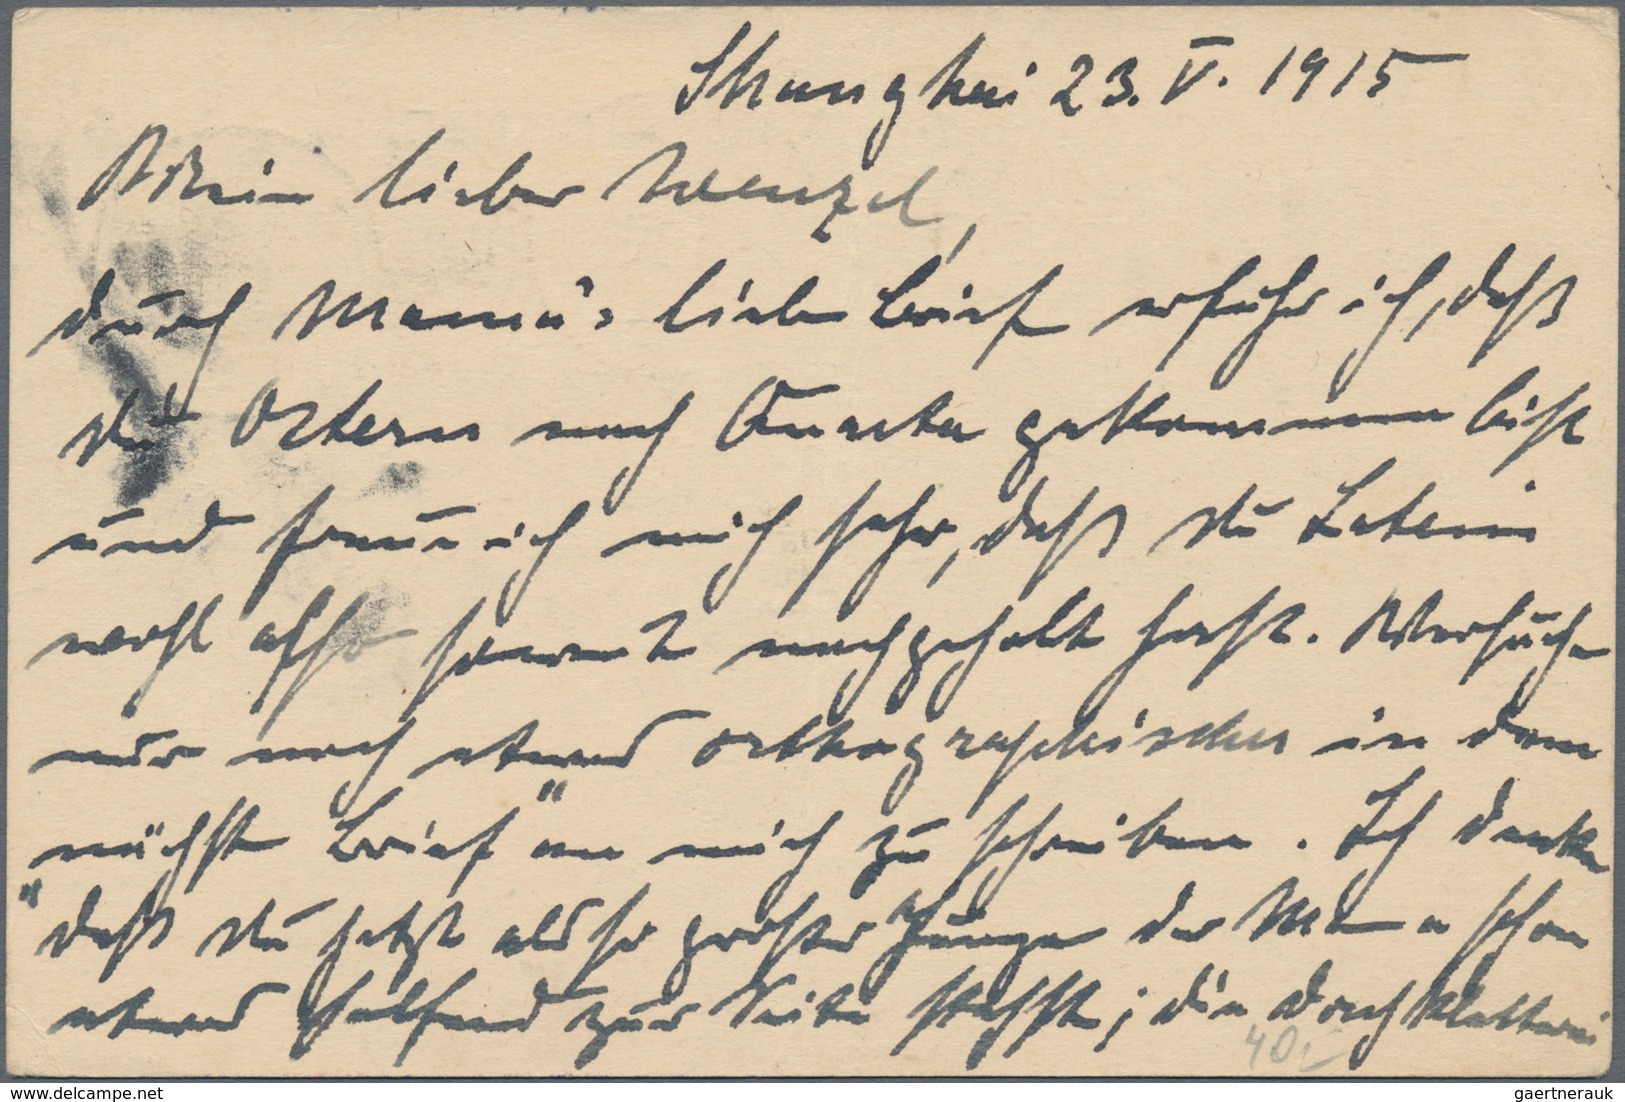 Shanghai 23. V. 1915
Mein lieber Wenzel,
durch Mama's lieben Brief erfuhr ich, daß
du Ostern nach Quarta gekommen bist
und freue ich mich sehr, daß du Latein
wohl also soweit nachgeholt hast. Versuche
nur noch etwas orthographischer in dem
nächsten Brief an mich zu schreiben. Ich denke
daß du jetzt als so großer Junge der Mama schon
etwas helfend zur Seite stehst; die doch
40,-
delcampe.net
gaertnerauk